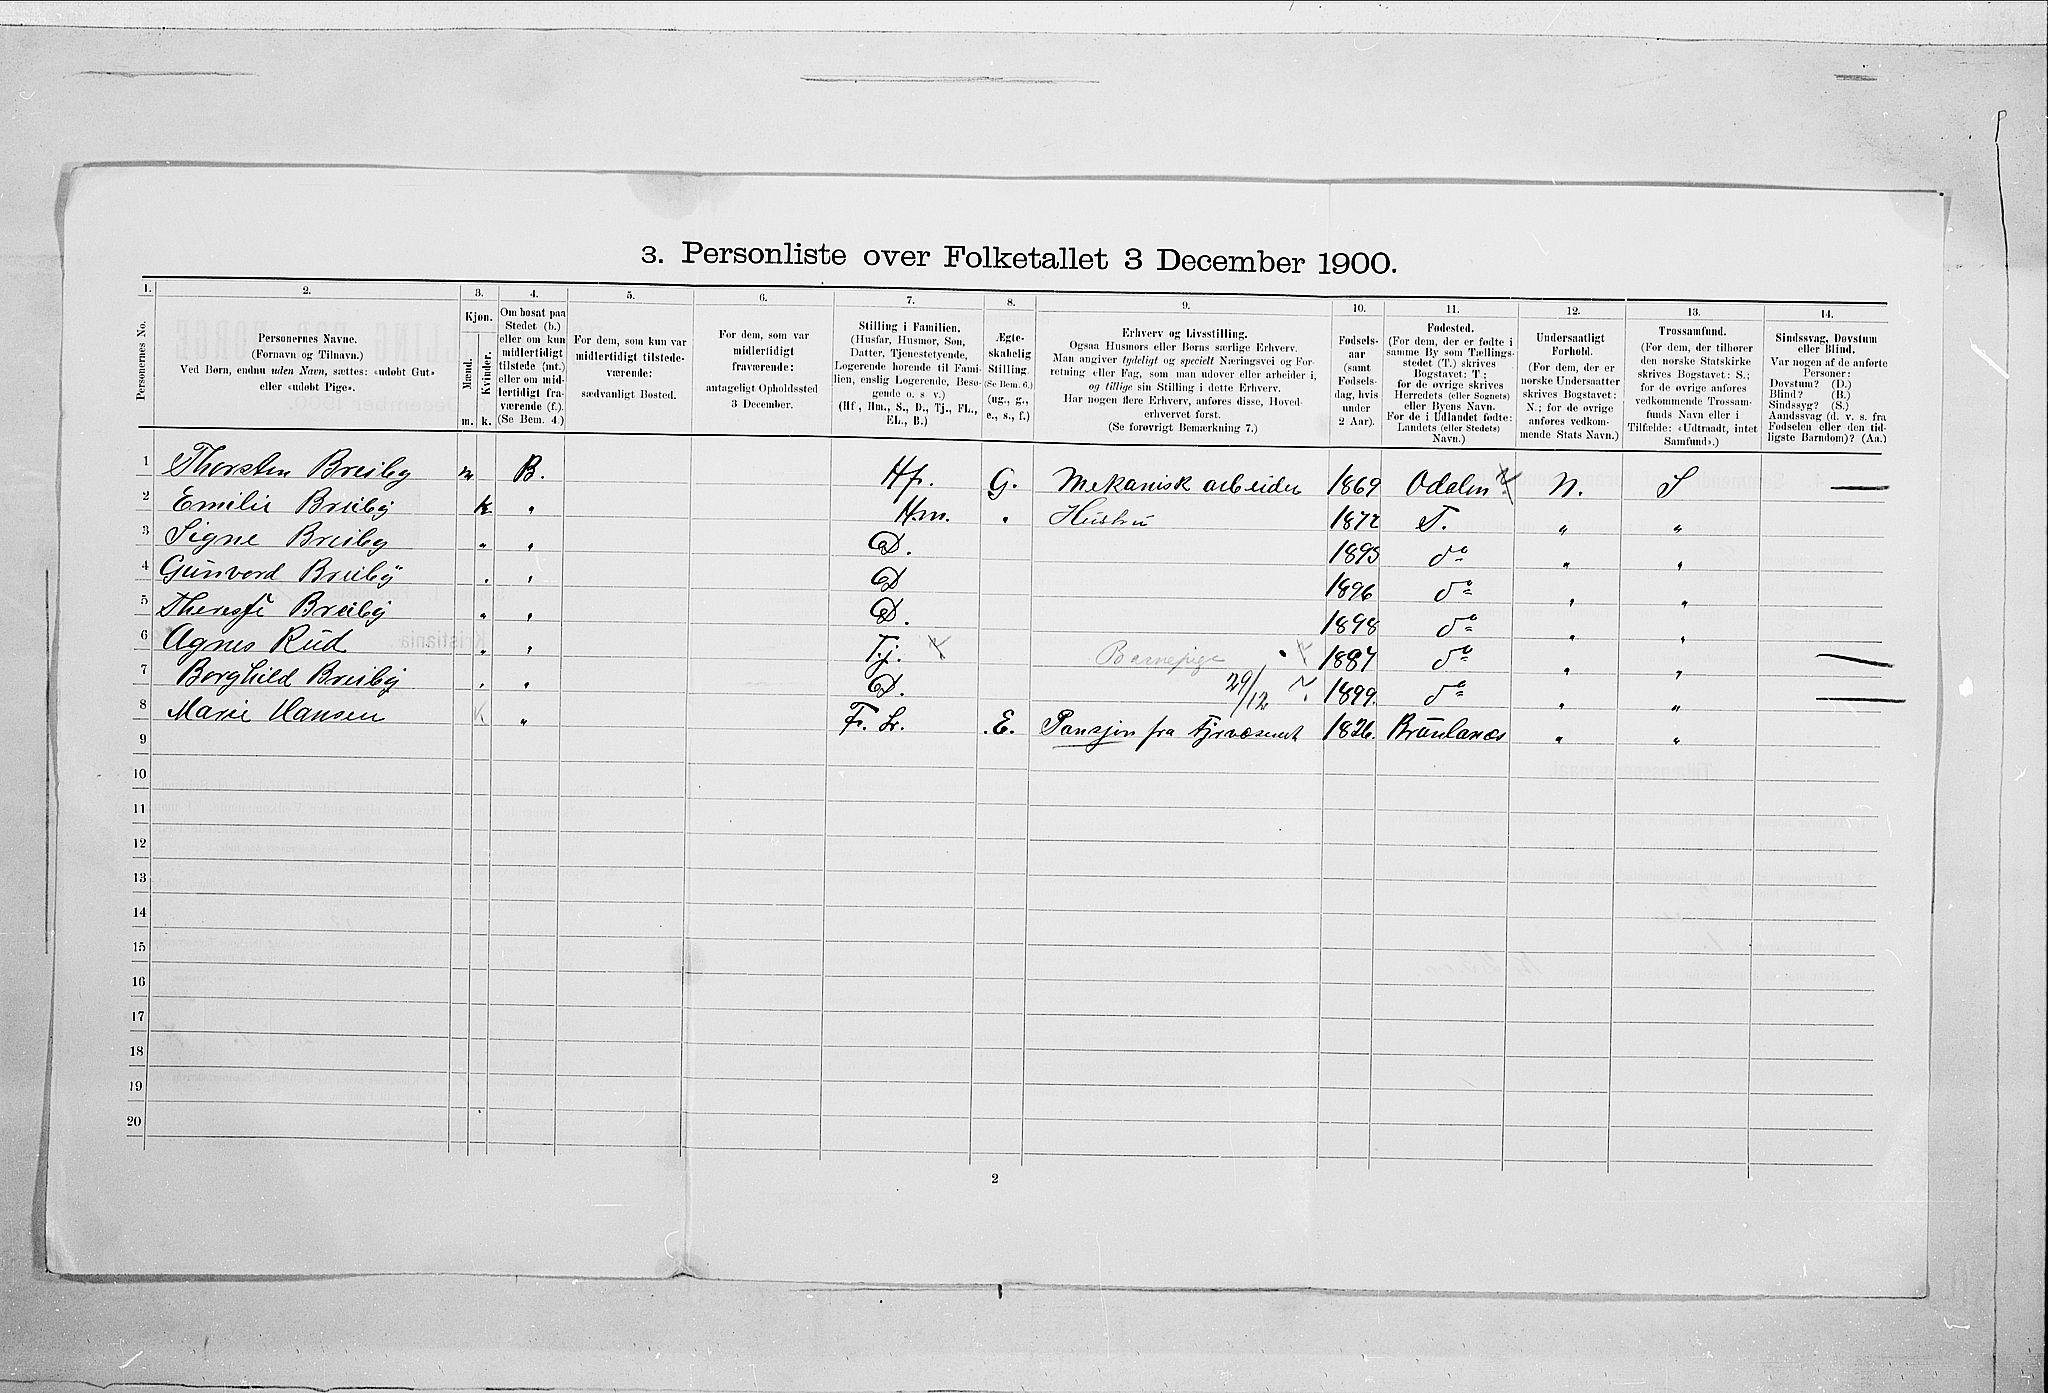 3. Personliste over Folketallet 3 December 1900.
1. 2. 3. 4. 5. 6. 7. 8. 9. 10. 11. 12. 13. 14.
Personernes No.
Personernes Navne.
(Fornavn og Tilnavn.)
Ved Børn, endnu uden Navn, sættes: «udøbt Gut»
eller «udøbt Pige».
Kjøn.
Mænd.
Kvinder.
m. k.
Om bosat paa
Stedet (b.)
eller om kun
midlertidigt
tilstede (mt.)
eller om mid-
lertidigt fra-
værende (f.).
(Se Bem. 4.)
For dem, som kun var
midlertidigt tilstede-
værende:
sædvanligt Bosted.
For dem, som var
midlertidigt
fraværende:
antageligt Opholdssted
3 December.
Stilling i Familien.
(Husfar, Husmor, Søn,
Datter, Tjenestetyende,
Logerende hørende til Fami-
lien, enslig Logerende, Besø-
gende o. s v.)
(Hf, Hm., S., D., Tj., FL.,
EL., B.)
Ægte-
skabelig
Stilling.
(Se Bem. 6.)
(ug., g.,
e., s., f.)
Erhverv og Livsstilling.
Ogsaa Husmors eller Børns særlige Erhverv.
Man angiver tydeligt og specielt Næringsvei og For-
retning eller Fag, som man udøver eller arbeider i,
og tillige sin Stilling i dette Erhverv.
Har nogen flere Erhverv, anføres disse, Hoved-
erhvervet først.
(Se forøvrigt Bemærkning 7.)
Fødsels-
aar
(samt
Fødsels-
dag, hvis
under
2 Aar).
Fødested.
(For dem, der er fødte i
samme By som Tællings-
stedet (T.) skrives
Bogstavet: T.;
for de øvrige skrives
Herredets (eller Sognets)
eller Byens Navn.
For de i Udlandet fødte:
Landets (eller Stedets)
Navn.)
Undersaatligt
Forhold.
(For dem, der er
norske Undersaatter
skrives Bogstavet:
N.; for de øvrige
anføres vedkom-
mende Stats Navn.)
Trossamfund.
(For dem, der tilhører
den norske Statskirke
skrives Bogstavet: S.;
for de øvrige anføres
vedkommende Trossam-
funds Navn eller i
Tilfælde: «Udtraadt, intet
Samfund».)
Sindssvag, Døvstum
eller Blind.
Var nogen af de anførte
Personer:
Døvstum? (D.)
Blind? (B.)
Sindssyg? (S.)
Aandssvag (d. v. s. fra
Fødselen eller den tid-
ligste Barndom)? (Aa.)
1 Thorsten Breiby m B. Hf. G. Mekanisk arbeider 1869 Odalen N. S —
2 Emilie Breiby k " H.m. " Hustru 1872 T. " "
3 Signe Breiby " " D. 1895 do " "
4 Gunvord Breiby " " D 1896 do " "
5 Breiby " " D. 1898 do " "
6 Agnes Rud " " T.j. Barnepige 1887 do " " —
7 Borghild Breiby " " D. 29/12 1899. do " " —
8 Marie Hansen " F. L. E. Pansjon fra Fyrvæsenet 1826. Brunlanæs " "
9
10
11
12
13
14
15
16
17
18
19
20
2